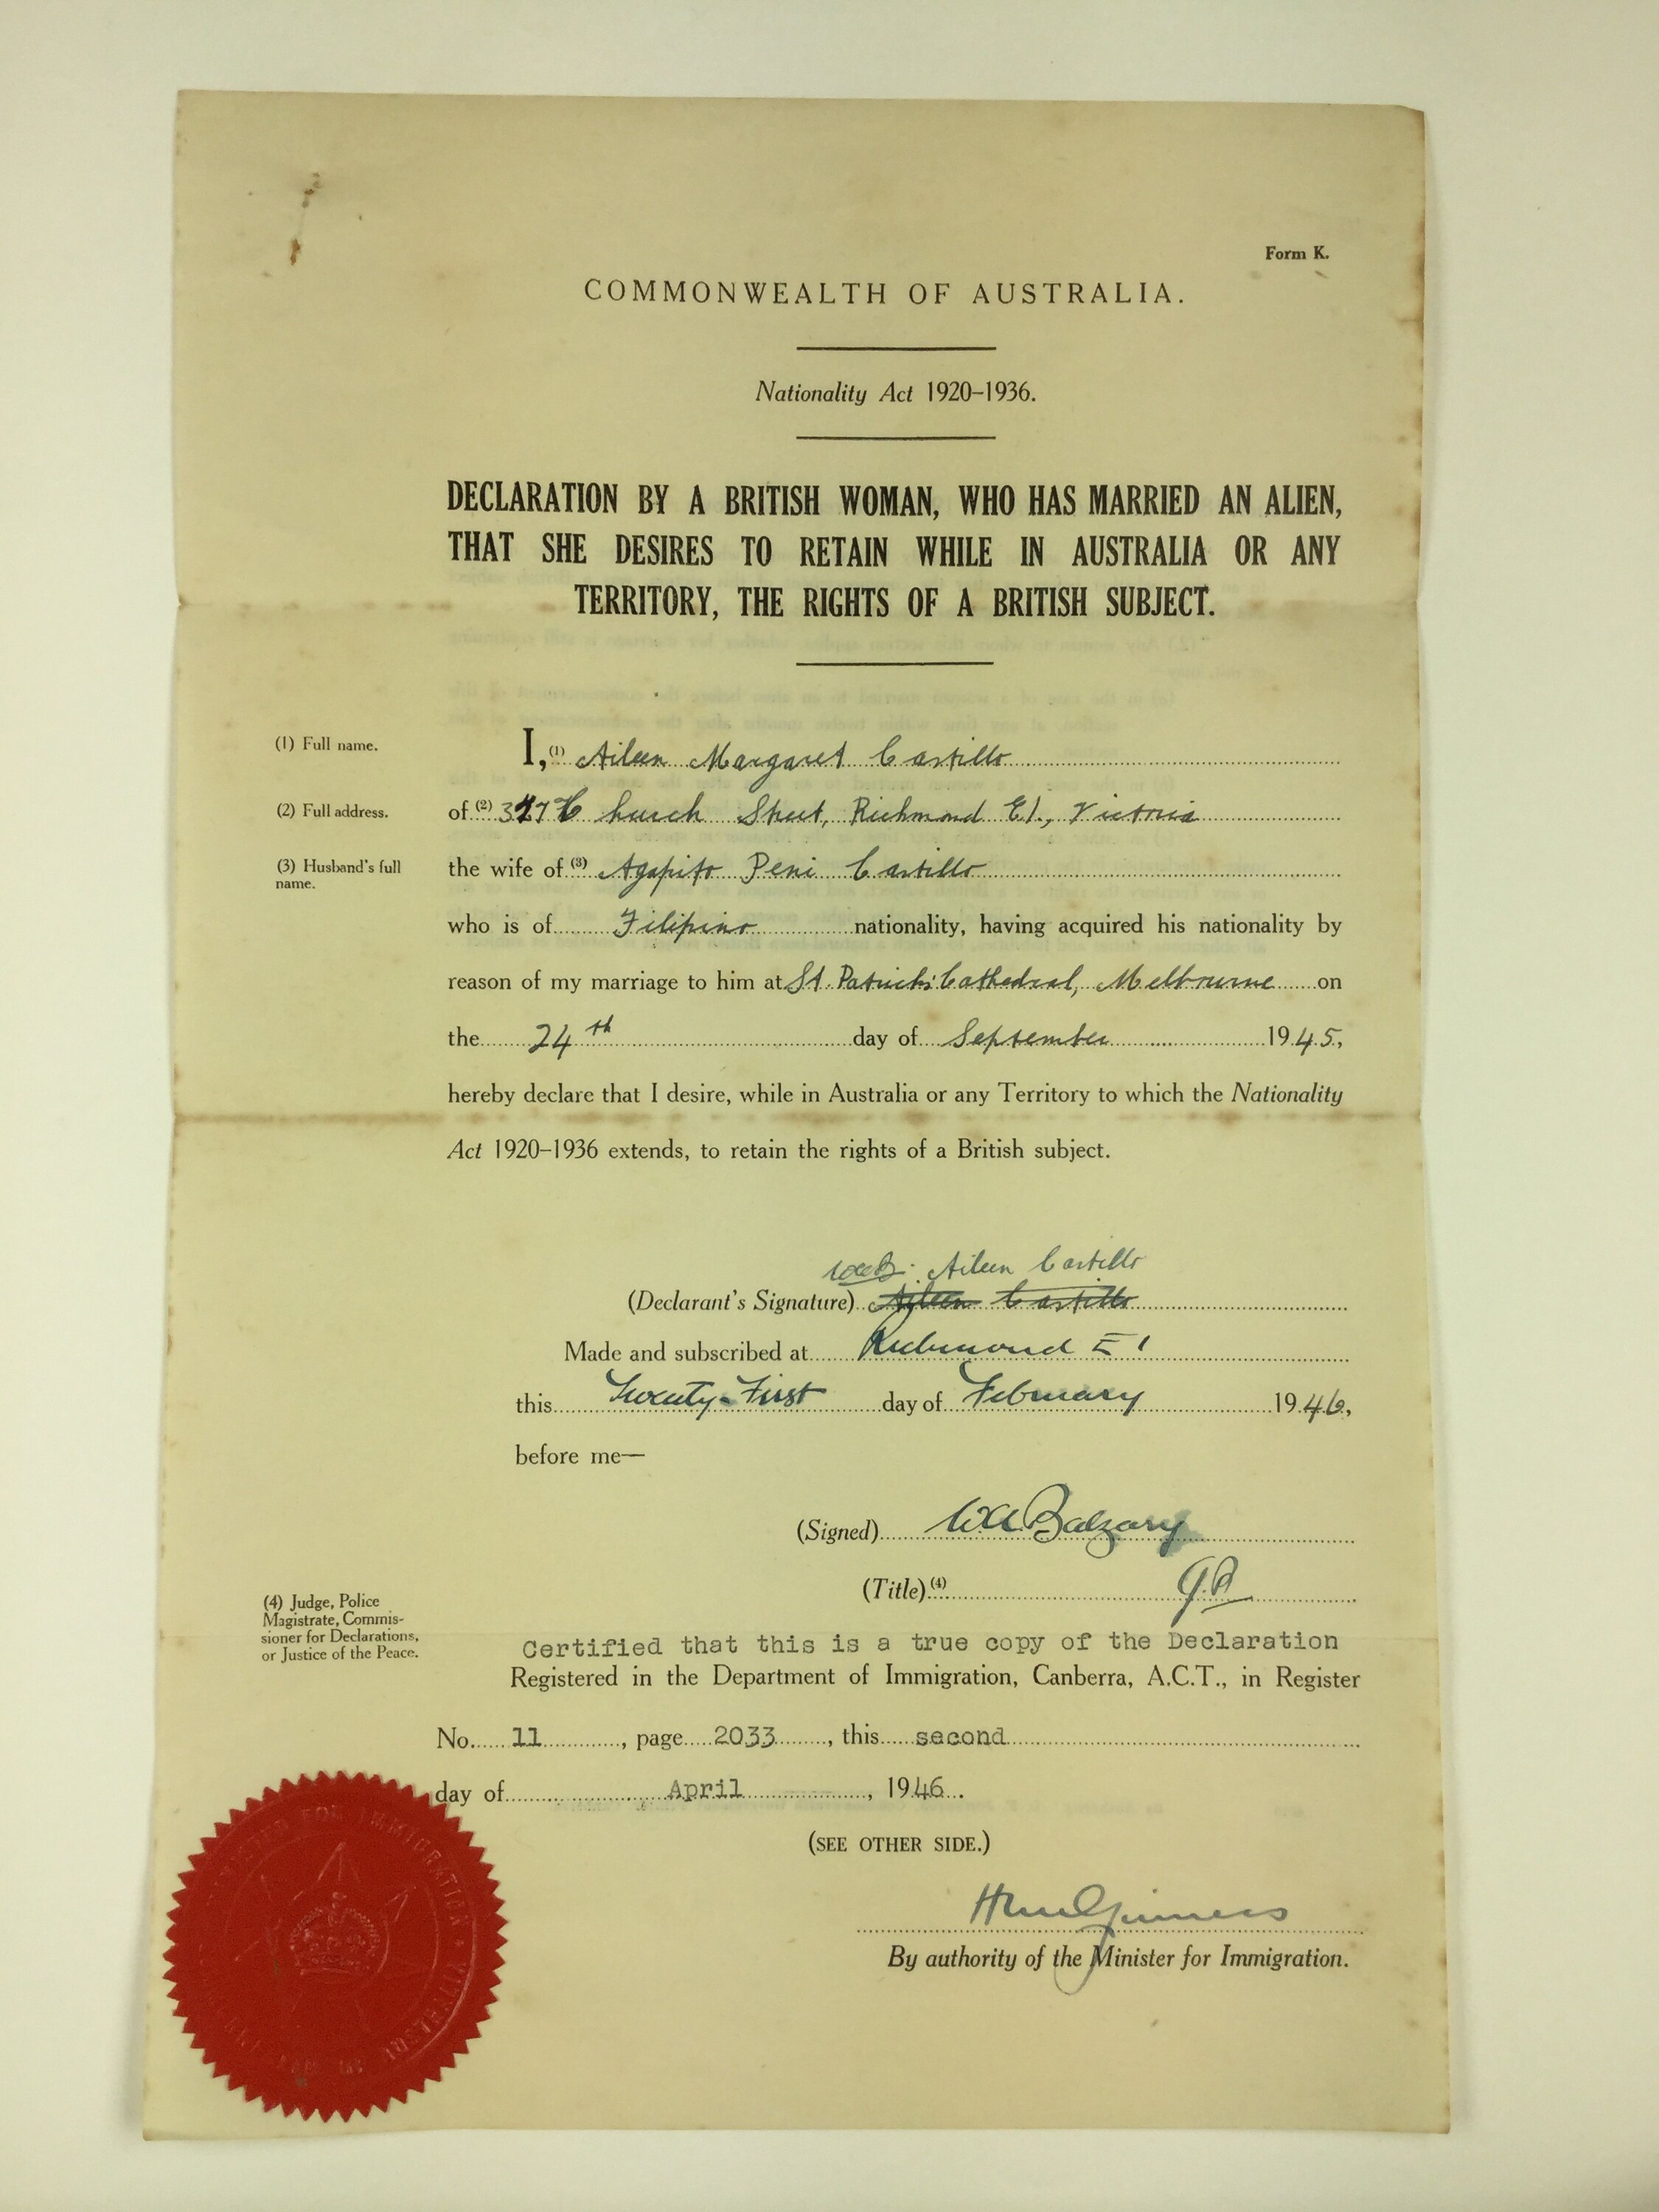 Form K.
COMMONWEALTH OF AUSTRALIA.
Nationality Act 1920–1936.
DECLARATION BY A BRITISH WOMAN, WHO HAS MARRIED AN ALIEN,
THAT SHE DESIRES TO RETAIN WHILE IN AUSTRALIA OR ANY
TERRITORY, THE RIGHTS OF A BRITISH SUBJECT.
(1) Full name.
I,(1) Aileen Margaret Castillo
(2) Full address.
of (2) Church Street, Richmond E1., Victoria
(3) Husband's full
name.
the wife of (3) Agapito Peni Castillo
who is of Filipino nationality, having acquired his nationality by
reason of my marriage to him at St. Patrick's Cathedral, Melbourne on
the 24th day of September 1945,
hereby declare that I desire, while in Australia or any Territory to which the Nationality
Act 1920–1936 extends, to retain the rights of a British subject.
Aileen Castillo
(Declarant's Signature) Aileen Castillo
Made and subscribed at Richmond E1
this Twenty-First day of February 1946,
before me—
(Signed) W Balzary
(Title)(4) J.P.
(4) Judge, Police
Magistrate, Commis-
sioner for Declarations,
or Justice of the Peace.
Certified that this is a true copy of the Declaration
Registered in the Department of Immigration, Canberra, A.C.T., in Register
No. 11, page 2033, this second
day of April, 1946.
(SEE OTHER SIDE.)
By authority of the Minister for Immigration.
FOR IMMIGRATION